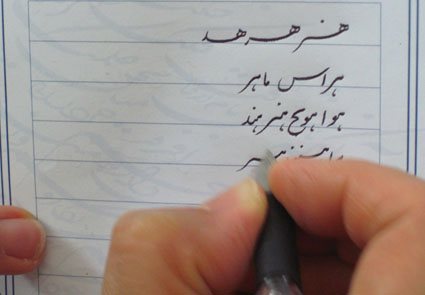 هنر هر هد
هراس ماهر
هوا هویج هنرمند